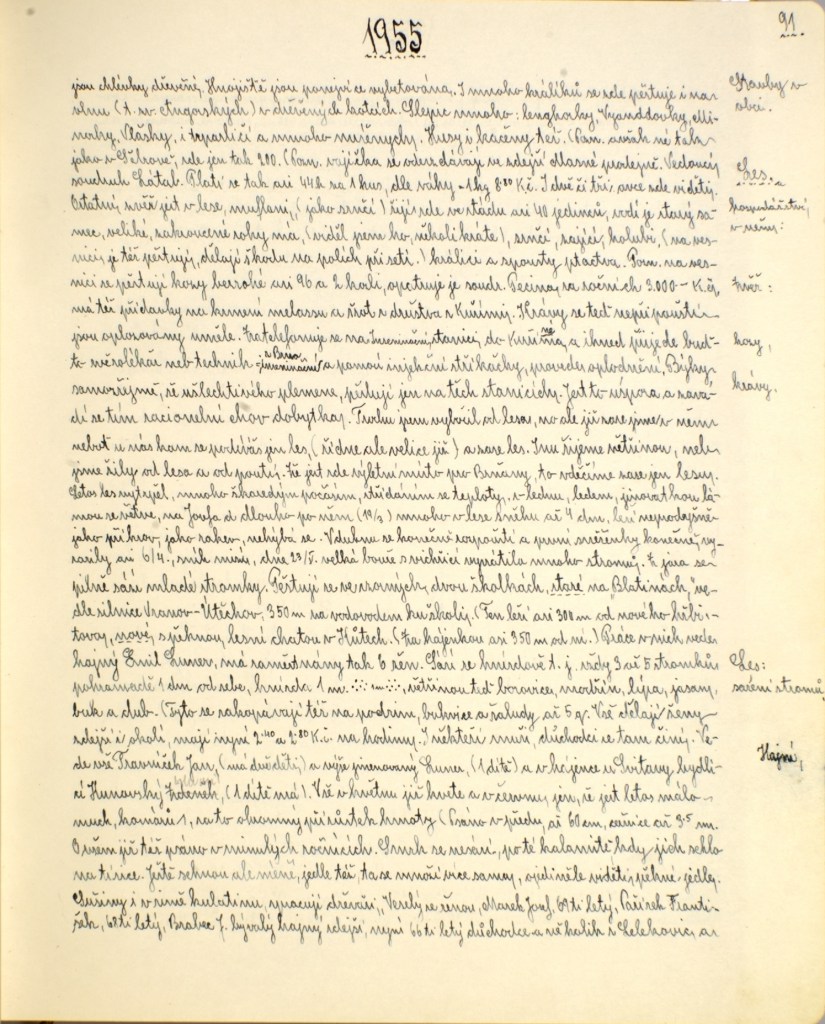 1955
91
jsou chlívky dřevěné. Hnojiště jsou ponejvíce vybetována. I mnoho králíků se zde pěstuje i na
vlnu (t. zv. Angorských) v dřěvěných kotcích. Slepic mnoho: lenghorky, Vyanddovky, Mi-
norky, Vlašky, i trpasličí a mnoho míšených. Husy i kačeny též. (Pozn. avšak né tak
jako v Líšňově, zde jen tak 200. (Pozn. vajíčka se odevzdávají ve zdejší Masné prodejně. Vedoucí
soudruh Látal. Platí se tak asi 44 h za 1 kus, dle váhy - 1 kg 8·80 Kč. I dvě či tři ovce zde viděti.
Ostatní zvěř jest v lese, mufloni, (jako srnčí) žijí zde ve stádu asi 40 jedinců, vodí je starý sa-
mec, veliké, zakroucené rohy má, (viděl jsem ho několikráte), srnčí, zajíci, holubi, (na ves-
nici je též pěstují, dělají škodu na polích při setí.) králíci a spousty ptactva. Pozn. na ves-
nici se pěstují kozy bezrohé asi 96 a 2 kozli, opatruje je soudr. Pecina, za ročních 3.000 - Kčs,
má též přídavky na krmení melassu a šrot z družstva z Kuřimi. Krávy se teď nepřipouští -
jsou oplozovány uměle. Zatelefonuje se na Inseminační stanici, do Kuřimě a ihned přijede buď-
to zvěrolékař neb technik a pomocí injekční stříkačky, provede oplodnění. Býky
samozřejmě, že ušlechtilého plemene, pěstují jen na těch stanicích. Jest to úspora a zavá-
dí se tím racionelní chov dobytka. Trochu jsem vybočil od lesa, no ale již zase jsme v něm
neboť u nás kam se podíváš jen les, (řídne ale velice již) a zase les. Inu žijeme většinou, neb
jsme žily od lesa a od pouti. Že jest zde výletní místo pro Brňany, to vděčíme zase jen lesu.
Letos les utrpěl, mnoho škaredým počasím, střídáním se teploty, v lednu, ledem, jinovatkou lá-
mou se větve, na Josefa a dlouho po něm (19/3) mnoho v lese sněhu až 4 dm, leží neprodejně
jako příkrov, jako rakev, nehýbá se. V dubnu se konečně rozpouští a první sněženky konečně vy-
razily asi 6/4., sníh mizí, dne 23/V. velká bouře s vichřicí vyvrátila mnoho stromů. Z jara se
pilně sází mladé stromky. Pěstují se ve vzorných, dvou školkách, staré na "Blatinách," ve-
dle silnice Vranov-Útěchov, 350 m za vodovodem ku školy, (Ten leží asi 300 m od nového hřbi-
tova, nové s pěknou lesní chatou v Hůtech. (Za hájenkou asi 350 m od ní.) Práce v nich vede
hajný Emil Luner, má zaměstnány tak 6 žen. Sází se hnízdově t. j. vždy 3 až 5 stromků
pohromadě 1 dm od sebe, hnízda 1 m. většinou teď borovice, modřín, lípa, jasan,
buk a dub. (Tyto se zakopávají též na podzim, bukvice a žaludy až 5 q. Vše dělají ženy
zdejší i okolí, mají nyní 2·40 a 2·80 Kč. na hodinu. I někteří muži, důchodci se tam činí. Ve-
de vše Travníček Jan, (má dvě děti) a výše jmenovaný Luner, (1 dítě) a v hájence u Svitavy bydlí-
cí Hunovský Zdeněk, (1 dítě má). Vše v květnu již kvete a v červnu, jen, že jest letos málo
much, komárů, za to ohromný přírůstek hmoty (Psáno v předu, až 60 cm, ostřice až 3·5 m.
O všem již též psáno v minulých ročnících. Smrk se nesází, po té kalamitě kdy jich schlo
na tisíce. Ještě schnou ale méně, jedle též, ta se množí více samo, ojediněle viděti, pěkné jedle.
Sušiny i v zimě kulatinu, zpracují dřevaři, Veselý se ženou, Marek Josef, 69ti letý, Pařírek Franti-
šek, 68ti letý, Brabec J. bývalý hajný zdejší, nyní 66 ti letý důchodce a několik z Lelekovic, a
Stavby v
obci.
Les: a
hospodářství
v něm:
Zvěř:
kozy,
krávy.
Les:
sázení stromů,
Hajní,